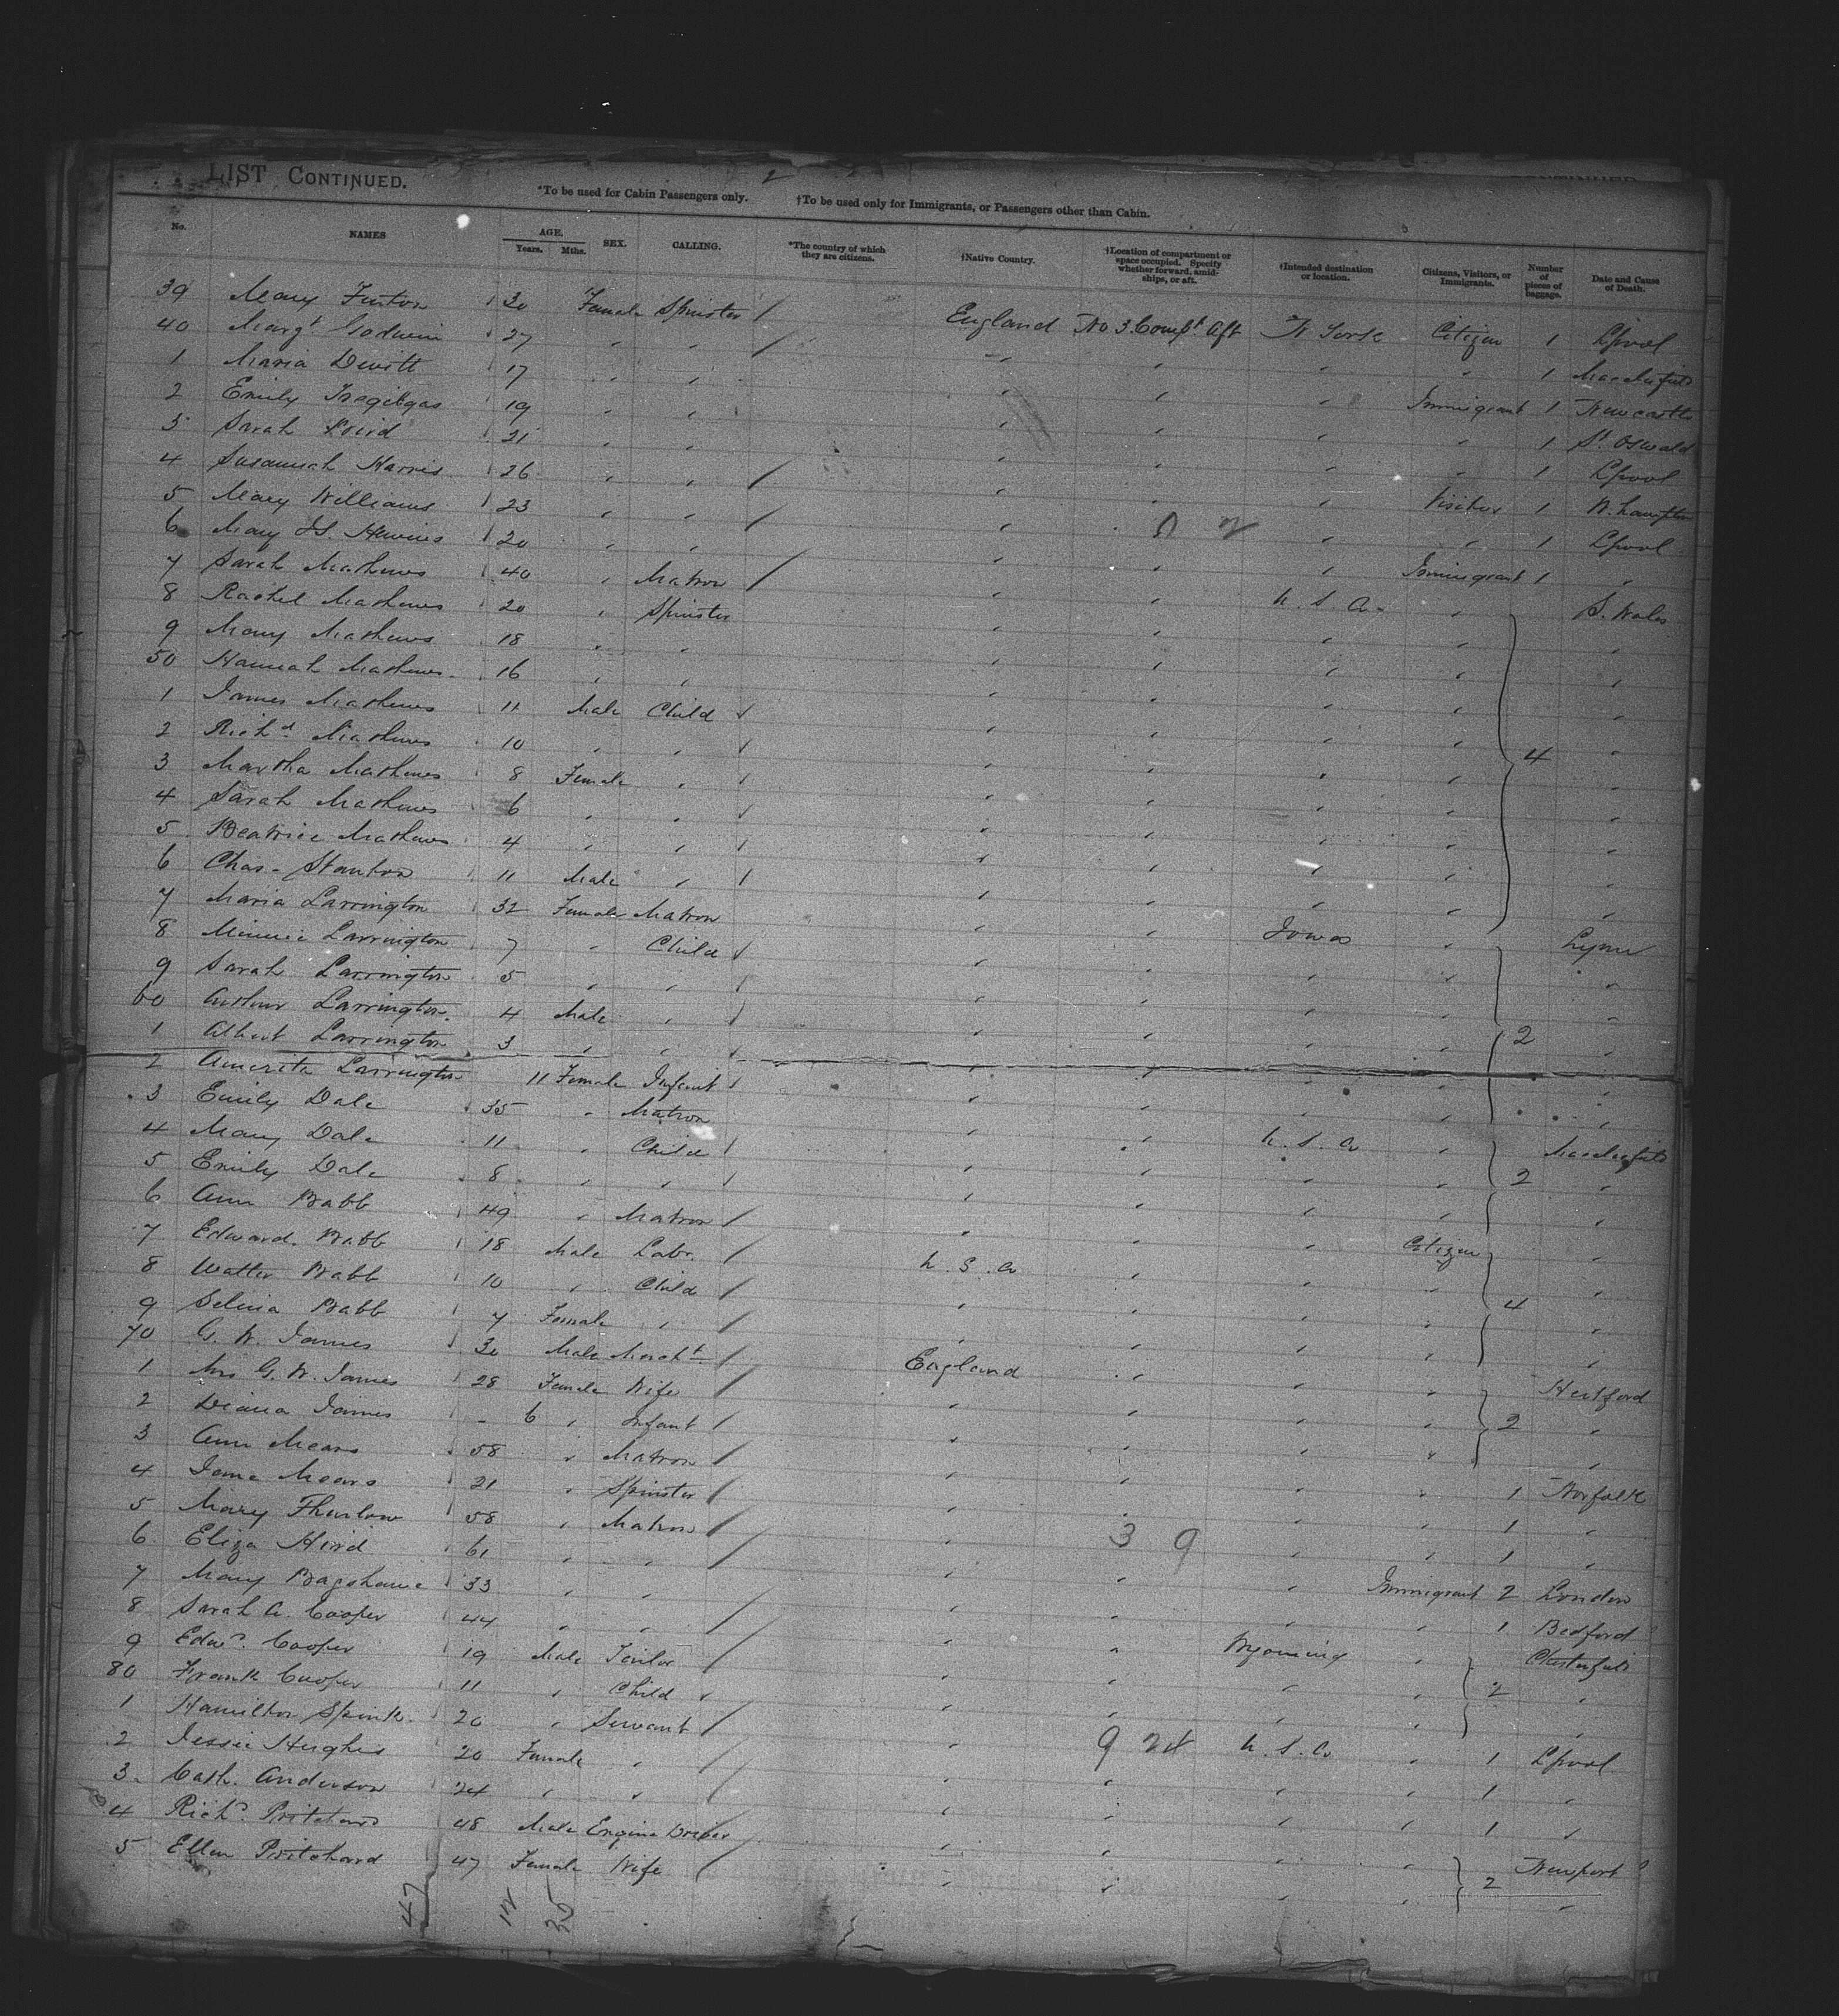 LIST CONTINUED.
*To be used for Cabin Passengers only. †To be used only for Immigrants, or Passengers other than Cabin.
No. NAMES AGE. Years. Mths. SEX. CALLING. *The country of which they are citizens. †Native Country. †Location of compartment or space occupied. Specify whether forward, amidships, or aft. †Intended destination or location. Citizens, Visitors, or Immigrants. Number of pieces of baggage. Date and Cause of Death.
39 Mary 30 Female Spinster England No 3 Compt. Aft N York Citizen 1 Lpool
40 Margt Godwin 27 " " " " " " 1 Macclesfield
1 Maria Dewitt 17 " " " " " Immigrant 1 Newcastle
2 Emily 19 " " " " " " 1 St Oswald
3 Sarah 21 " " " " " " 1 Lpool
4 Susannah Harris 26 " " " " " Visitor 1 W.hampton
5 Mary Williams 23 " " " " " " 1 Lpool
6 Mary 20 " " " " " Immigrant 1 "
7 Sarah Mathews 40 " Matron " " U.S.A. " S. Wales
8 Rachel Mathews 20 " Spinster " " " " "
9 Mary Mathews 18 " " " " " " "
50 Hannah Mathews 16 " " " " " " "
1 James Mathews 11 Male Child " " " " "
2 Richd Mathews 10 " " " " " " 4 "
3 Martha Mathews 8 Female " " " " " "
4 Sarah Mathews 6 " " " " " " "
5 Beatrice Mathews 4 " " " " " " "
6 Chas. Stanton 11 Male " " " " " "
7 Maria Larrington 32 Female Matron " " Iowa " Lynn
8 Minnie Larrington 7 " Child " " " " "
9 Sarah Larrington 5 " " " " " " "
60 Arthur Larrington 4 Male " " " " " 2 "
1 Albert Larrington 3 " " " " " " "
2 Larrington 11 Female Infant " " " " "
3 Emily Dale 35 " Matron " " U.S.A " Macclesfield
4 Mary Dale 11 " Child " " " " 2 "
5 Emily Dale 8 " " " " " " "
6 Ann Babb 49 " Matron " " " Citizen "
7 Edward Babb 18 Male Labr. U.S.A " " " "
8 Walter Babb 10 " Child " " " " 4 "
9 Selina Babb 7 Female " " " " " "
70 G. W. James 30 Male Mercht England " " " Hertford
1 Mrs G. W. James 28 Female Wife " " " " 2 "
2 Diana James - 6 " Infant " " " " "
3 Ann Mears 58 " Matron " " " " 1 Norfolk
4 Jane Mears 21 " Spinster " " " " 1 "
5 Mary Thurlow 58 " Matron " " " " 1 "
6 Eliza Hird 61 " " " " " Immigrant 2 London
7 Mary Bagshawe 33 " " " " " " 1 Bedford
8 Sarah A. Cooper 44 " " " " Wyoming " Chesterfield
9 Edwd. Cooper 19 Male Tailor " " " " 2 "
80 Frank Cooper 11 " Child " " " " "
1 Hamilton Spink 20 " Servant " " U.S.A " 1 Lpool
2 Jessie Hughes 20 Female " " " " " 1 "
3 Cath. Anderson 24 " " " " " " 1 "
4 Richd. Pritchard 48 Male Engine Driver " " " " 2 Newport
5 Ellen Pritchard 47 Female Wife " " " " "
47 12 35